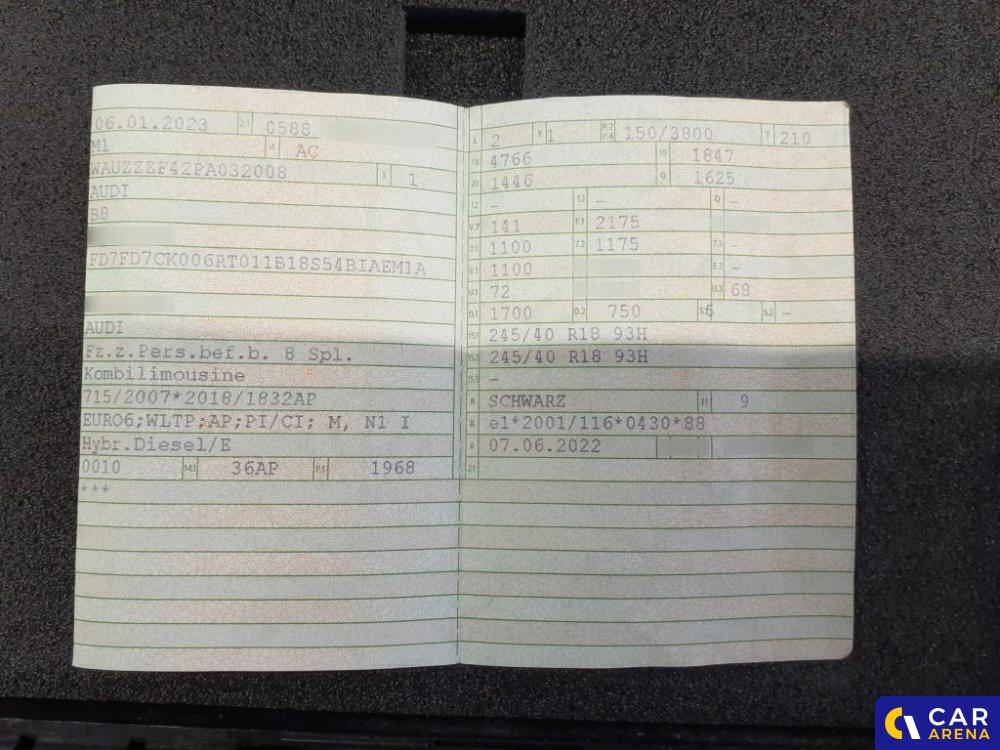 06.01.2023 2.1 0588
M1 4 AC
WAUZZZF42PA032008 3 1
AUDI
B8
FD7FD7CK006RT011B18S54BIAEM1A
AUDI
Fz.z.Pers.bef.b. 8 Spl.
Kombilimousine
715/2007*2018/1832AP
EURO6;WLTP;AP;PI/CI; M, N1 I
Hybr.Diesel/E
0010 36AP P.1 1968
+++
L 2 9 1 P.2 P.4 150/3800 T 210
18 4766 19 1847
20 1446 G 1625
12 – 13 – Q –
V.7 141 F.1 2175
7.1 1100 7.2 1175 7.3 –
8.1 1100 8.3 –
U.1 72 U.3 68
O.1 1700 O.2 750 S.1 5 S.2 –
15.1 245/40 R18 93H
15.2 245/40 R18 93H
15.3 –
R SCHWARZ 11 9
K e1*2001/116*0430*88
6 07.06.2022
21
CAR
ARENA